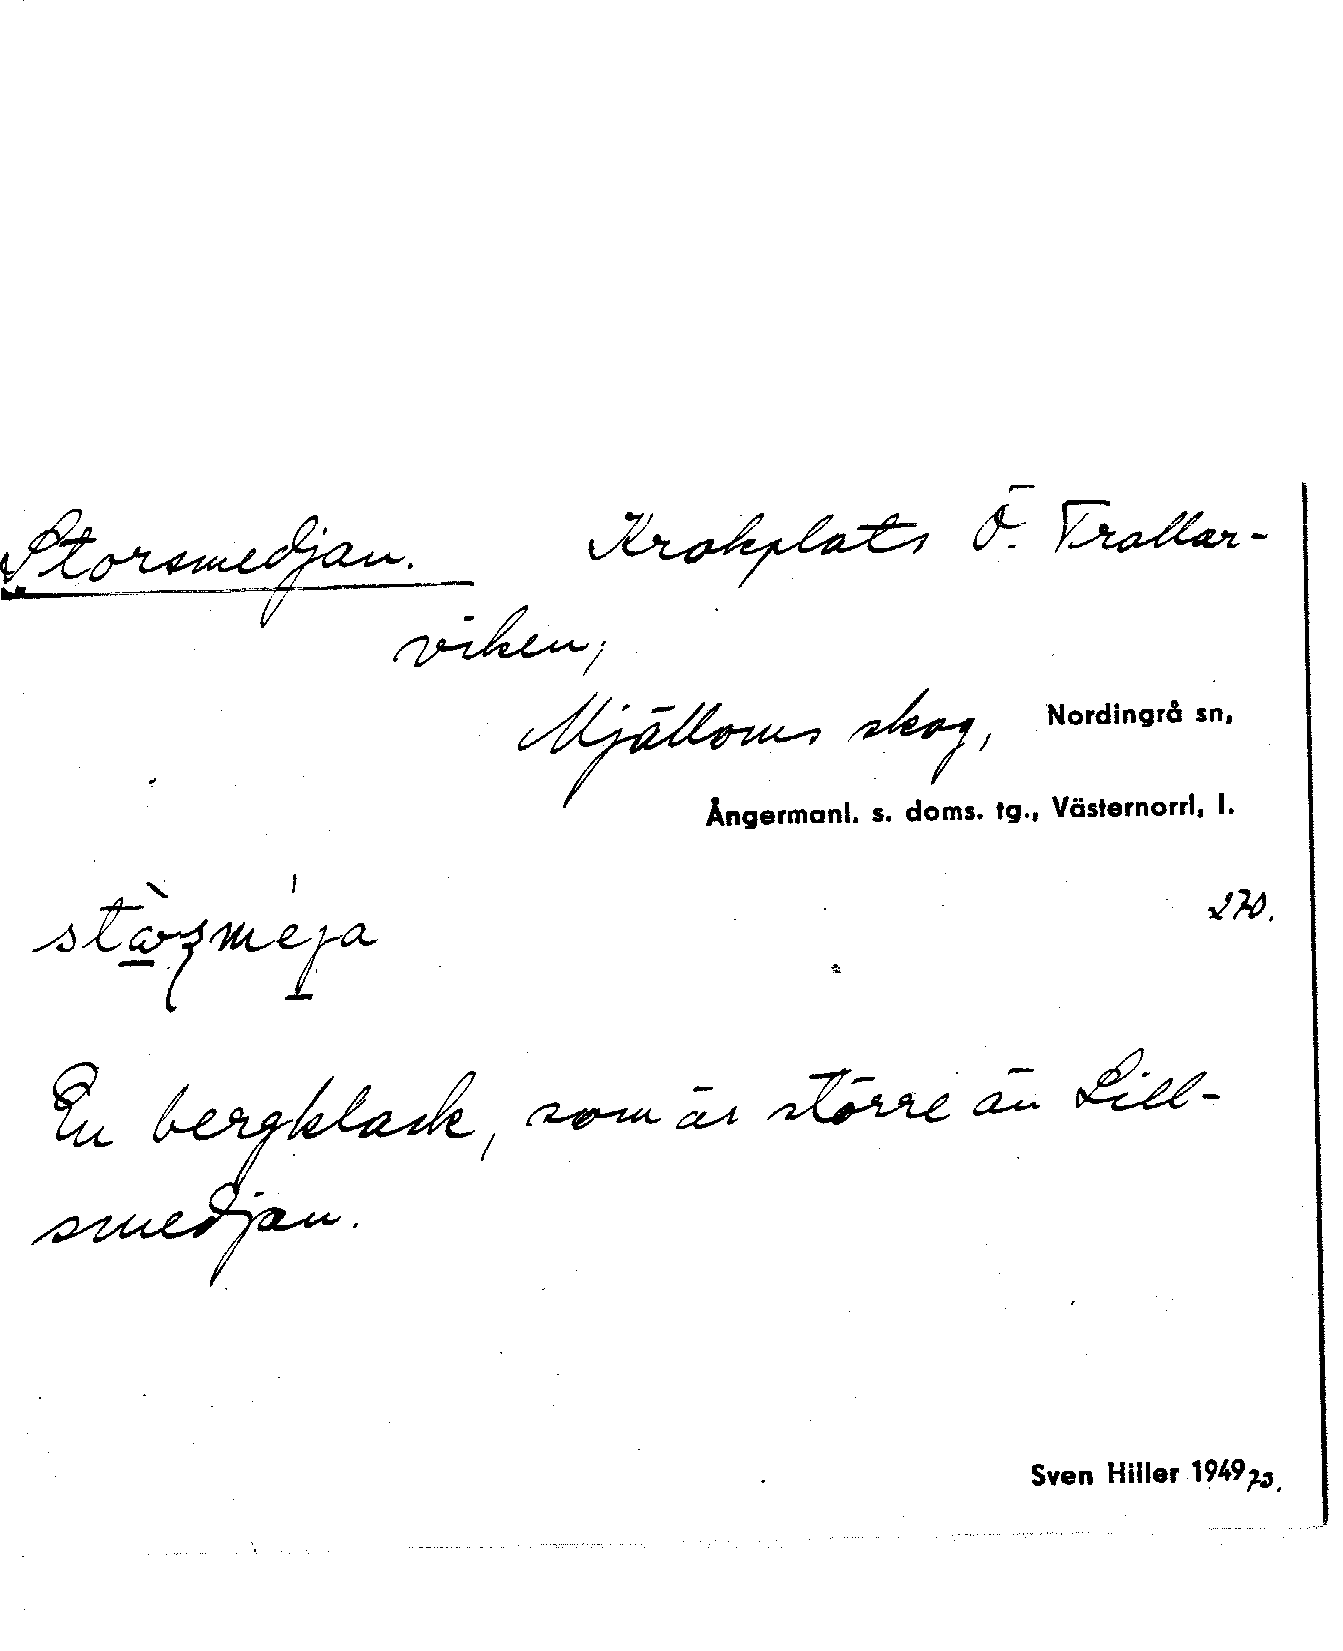 Storsmedjan. Krokplats Ö. Trollar-
viken,
Mjälloms skog, Nordingrå sn,
Ångermanl. s. doms. tg., Västernorrl, l.
270.
En bergklack, som är större än Lill-
smedjan.
Sven Hiller 1949